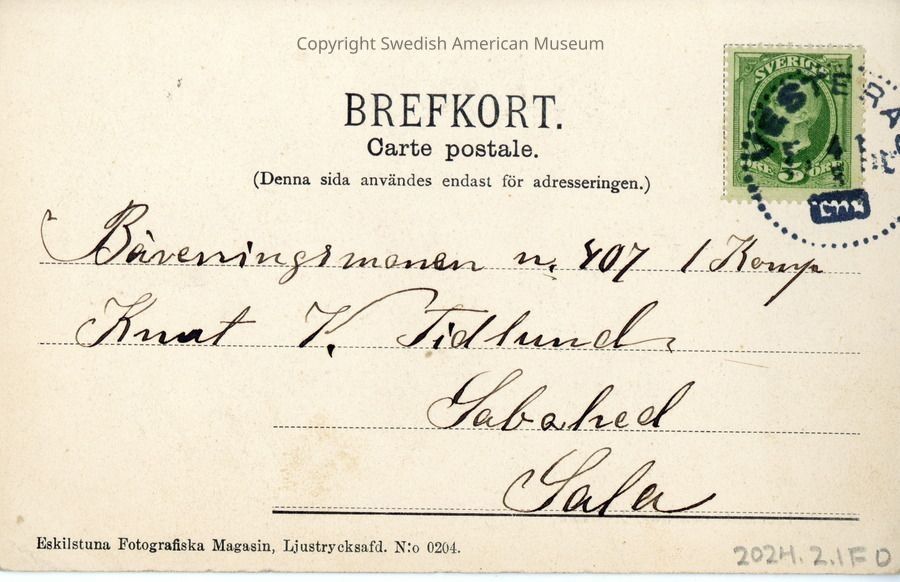 Copyright Swedish American Museum
SVERIGE
5
ÖRE ÖRE
VESTERÅ
BREFKORT.
Carte postale.
(Denna sida användes endast för adresseringen.)
Bäverningsmanen n. 407 1 Komp
Knut V. Tidlund
Salahed
Sala
Eskilstuna Fotografiska Magasin, Ljustrycksafd. N:o 0204.
2024.2.1FD